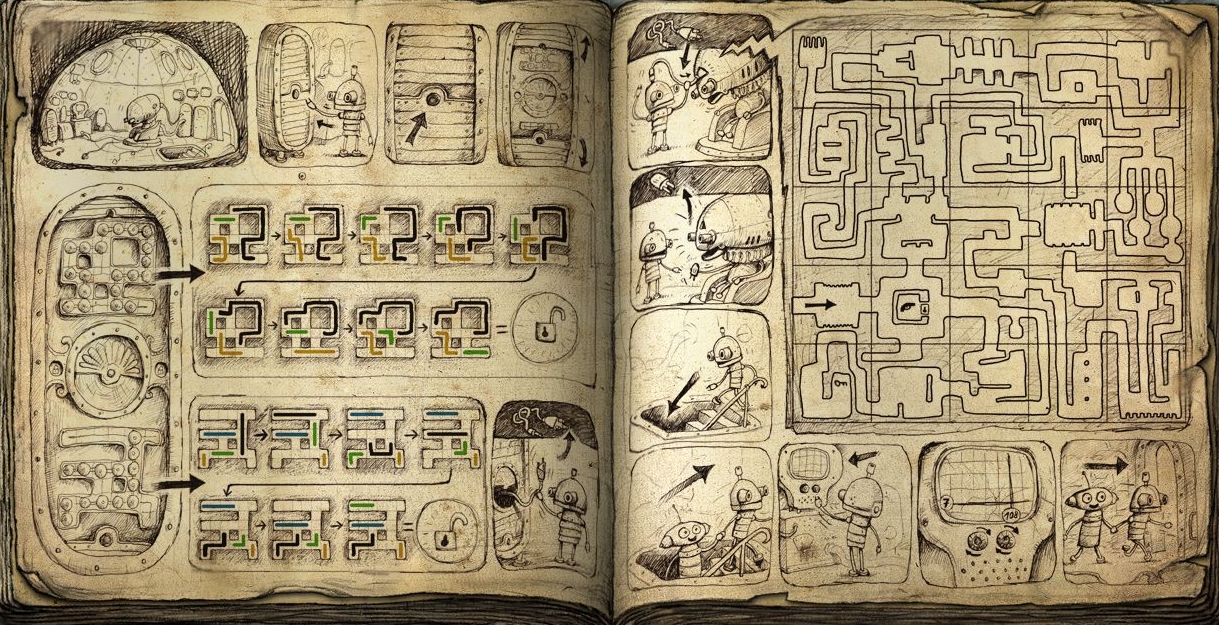 =
=
7
108